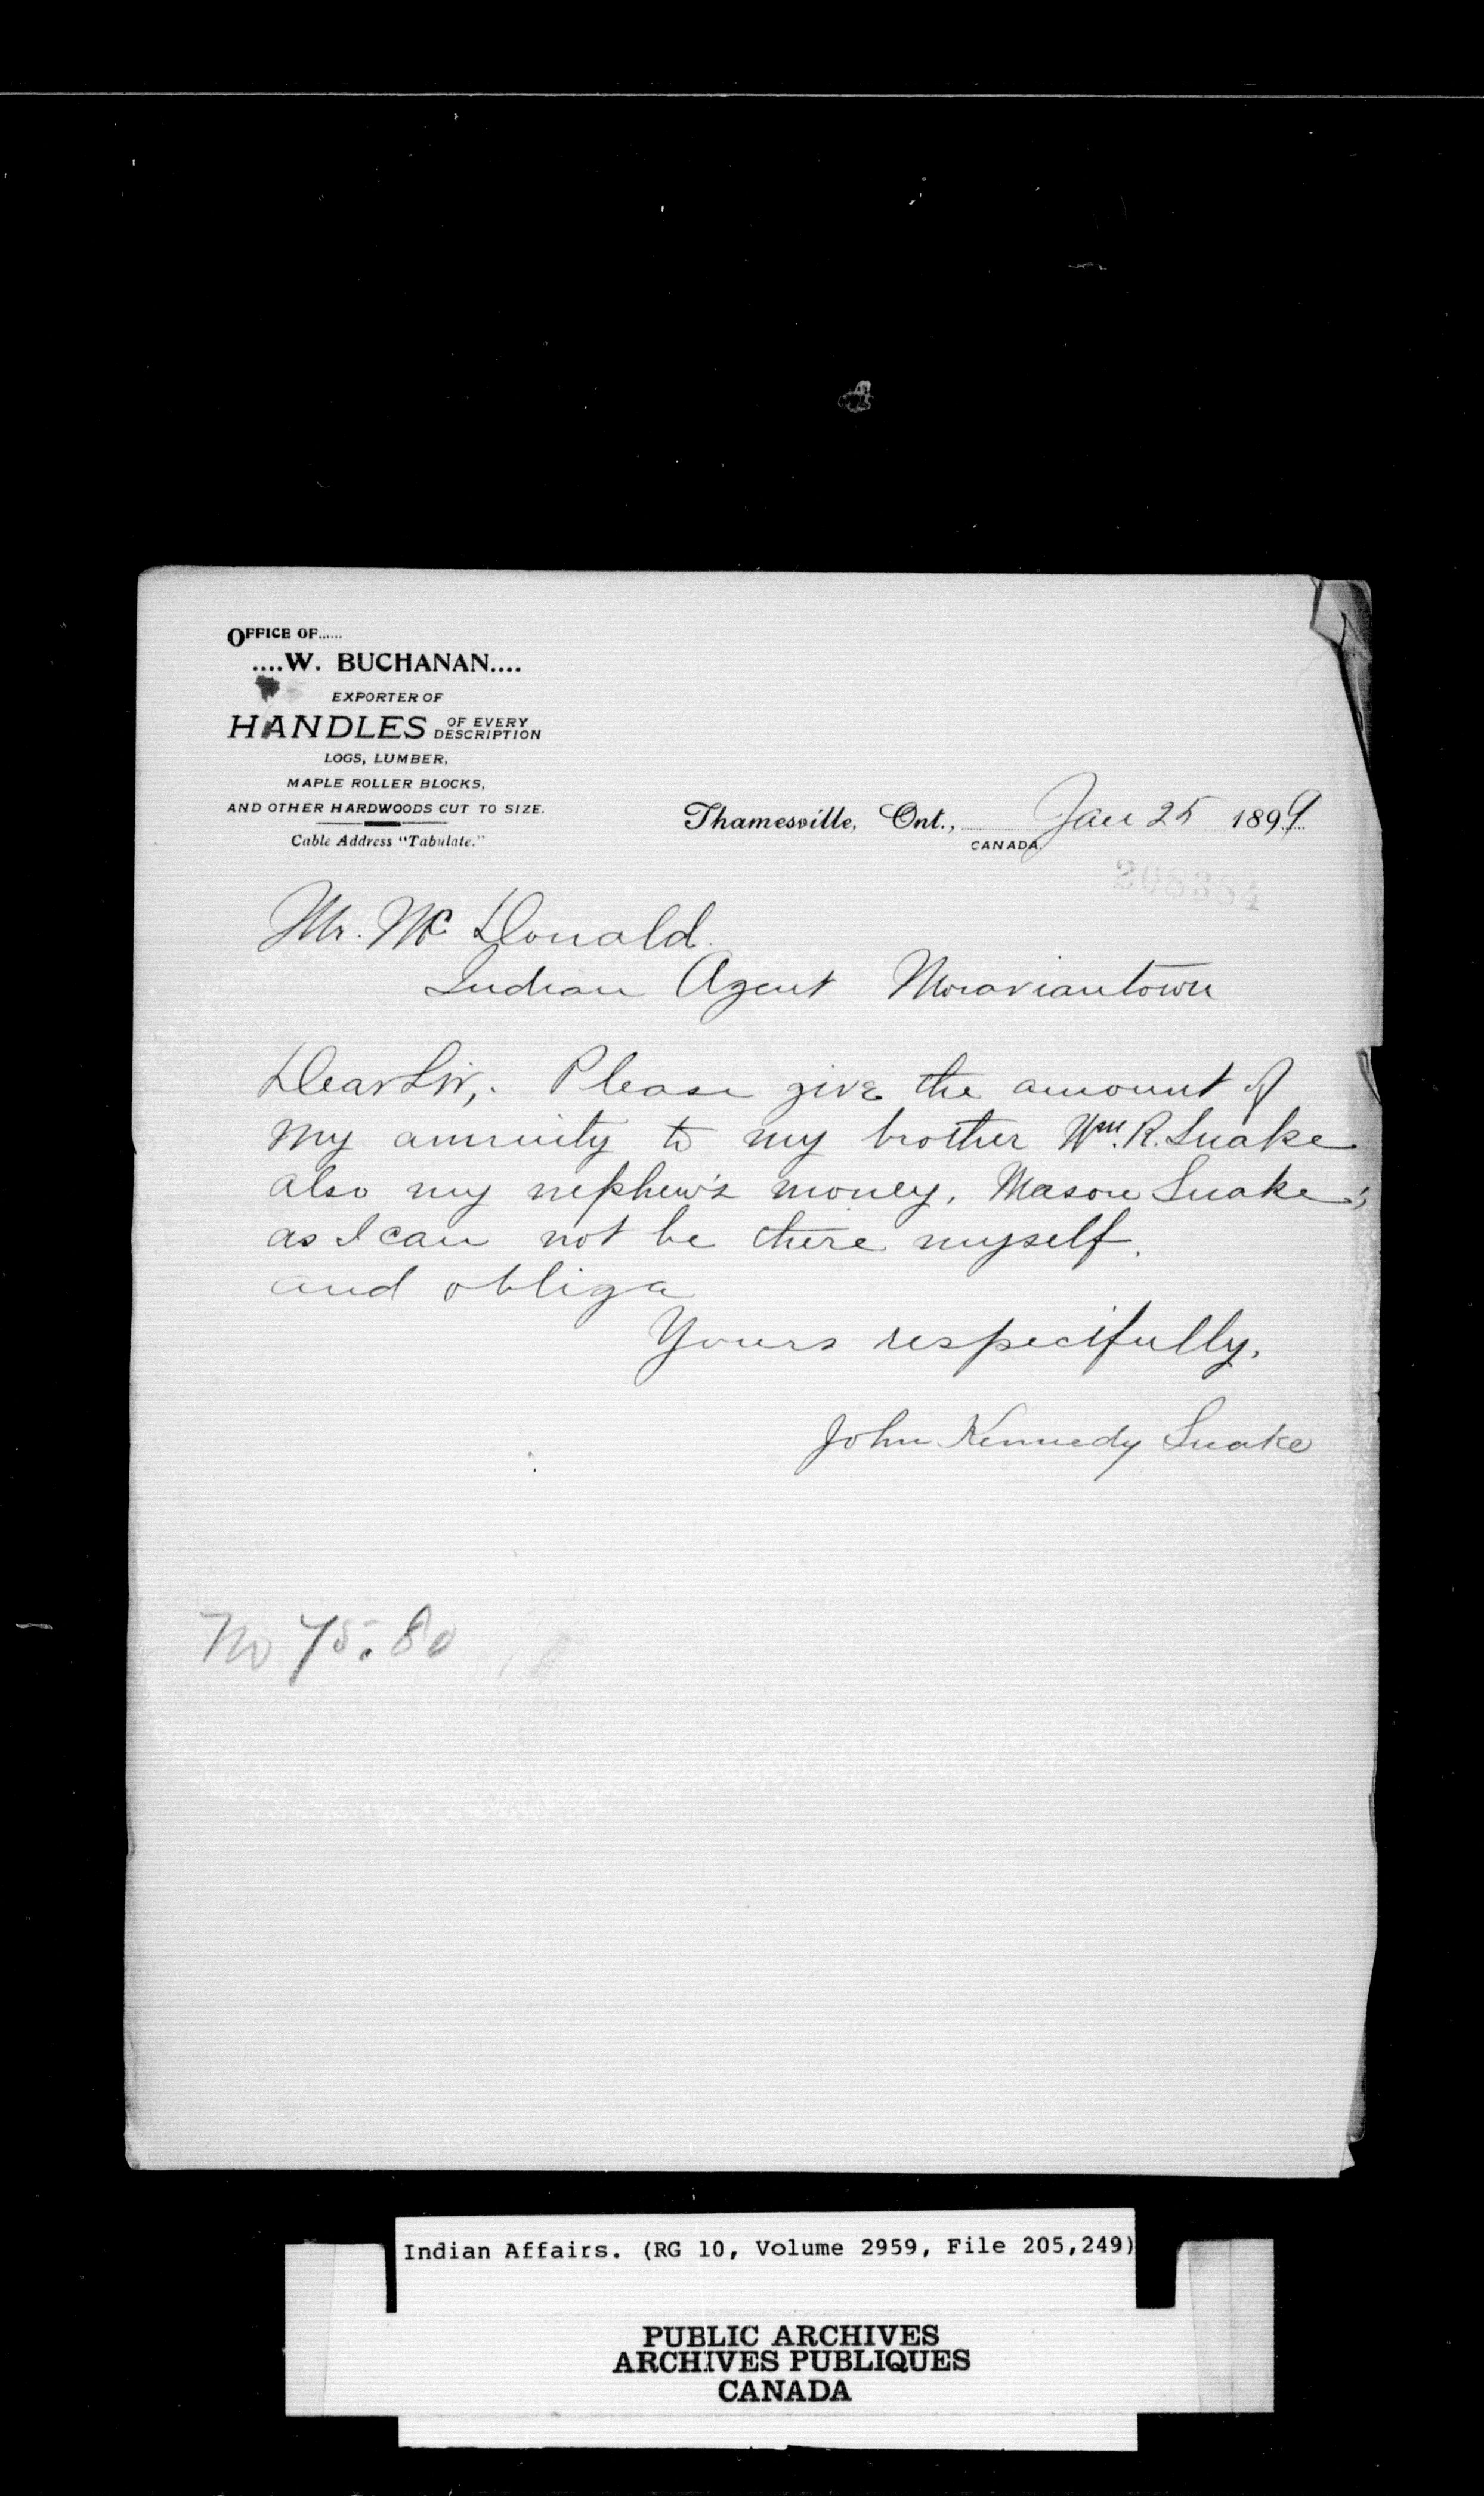 OFFICE OF......
....W. BUCHANAN....
EXPORTER OF
HANDLES OF EVERY DESCRIPTION
LOGS, LUMBER,
MAPLE ROLLER BLOCKS,
AND OTHER HARDWOODS CUT TO SIZE.
Cable Address "Tabulate."
Thamesville, Ont., Jan 25 1899
CANADA.
208384
Mr. Mc Donald.
Indian Agent Moraviantown
Dear Sir,. Please give the amount of
my annuity to my brother Wm. R. Snake
also my nephew's money, Mason Snake;
as I can not be there myself.
and oblige
Yours respectfully,
John Kennedy Snake
No 75.80
Indian Affairs. (RG 10, Volume 2959, File 205,249)
PUBLIC ARCHIVES
ARCHIVES PUBLIQUES
CANADA